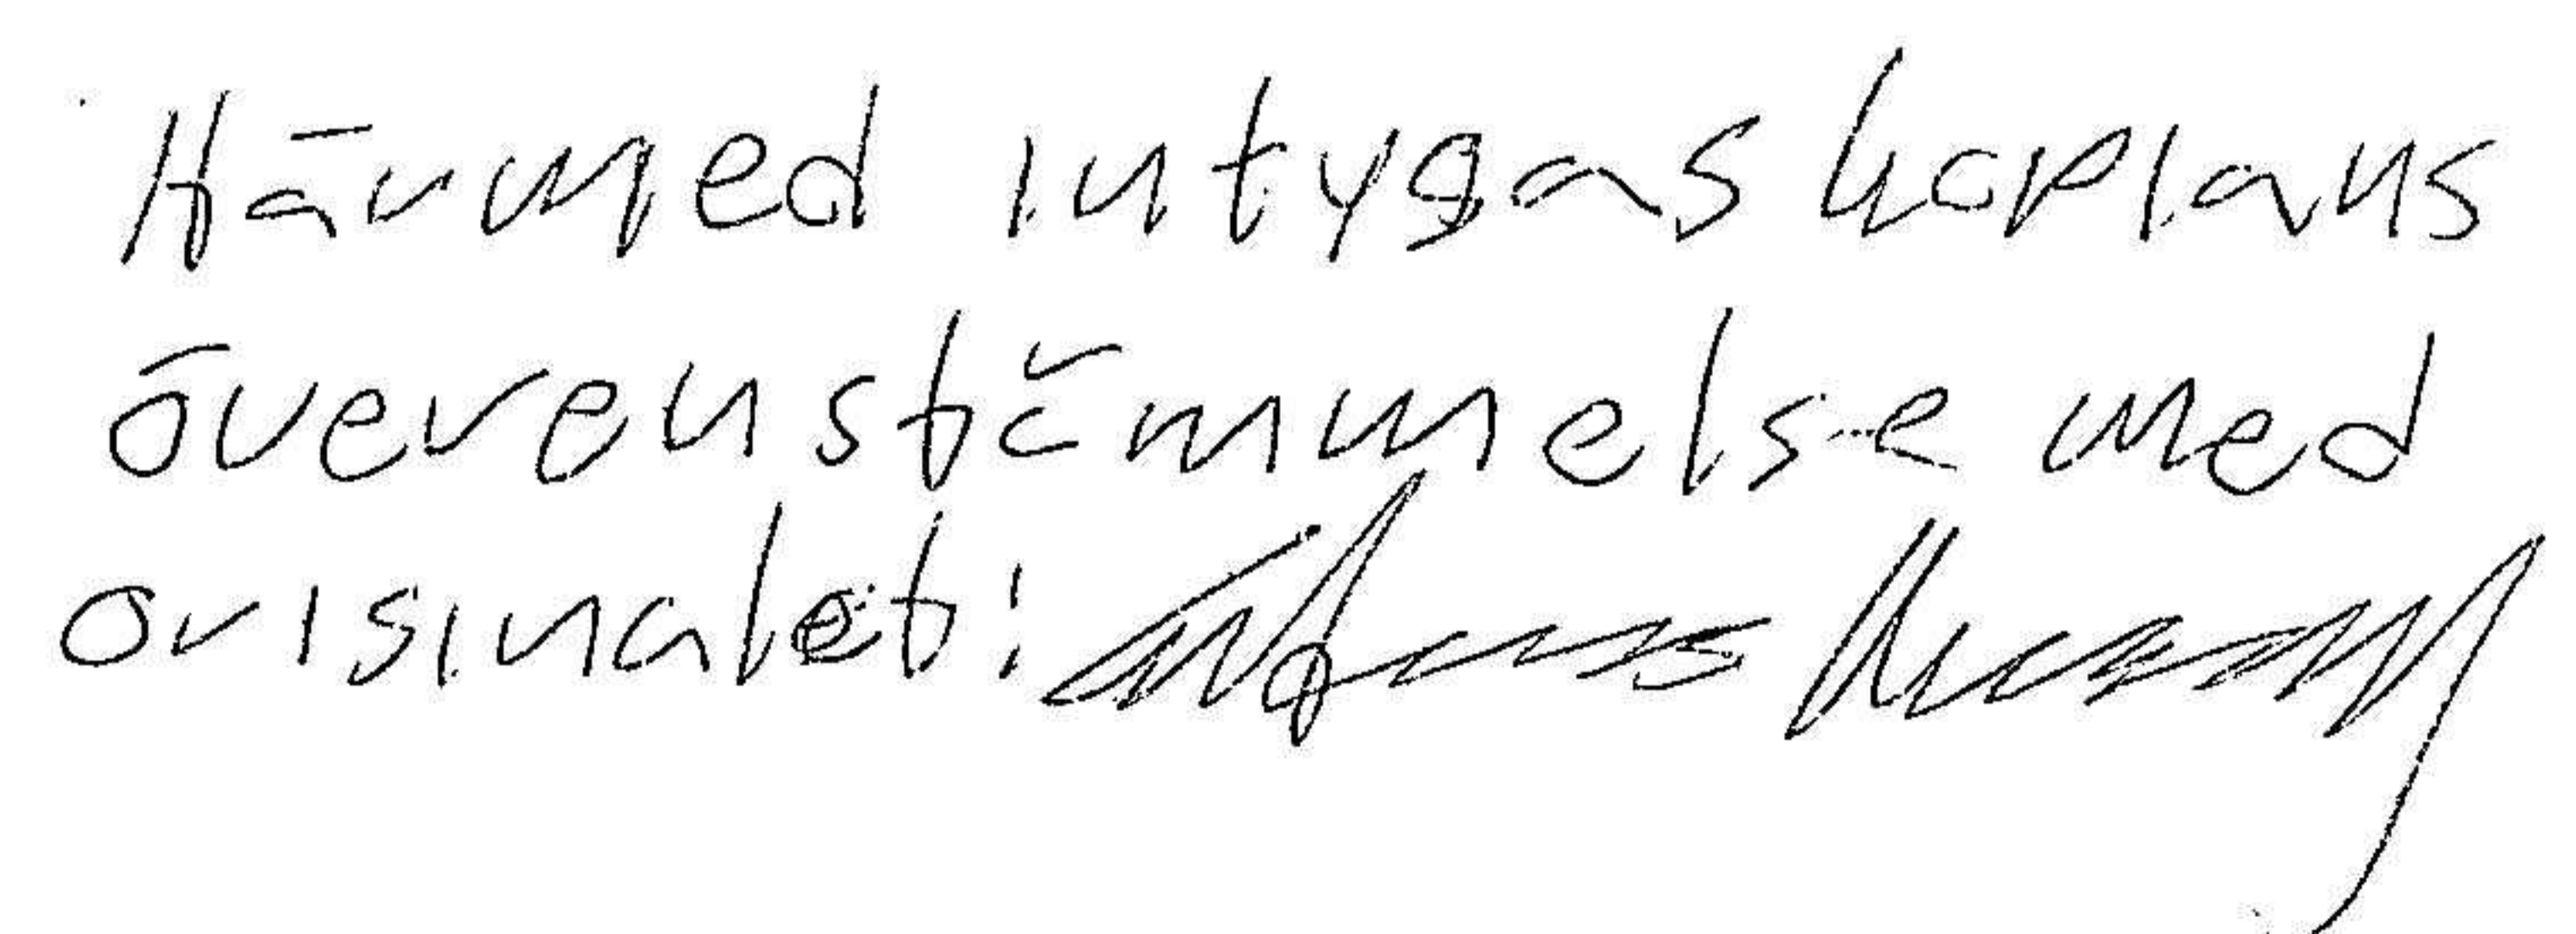 Härmed intygas kopians
överensstämmelse med
originalet: